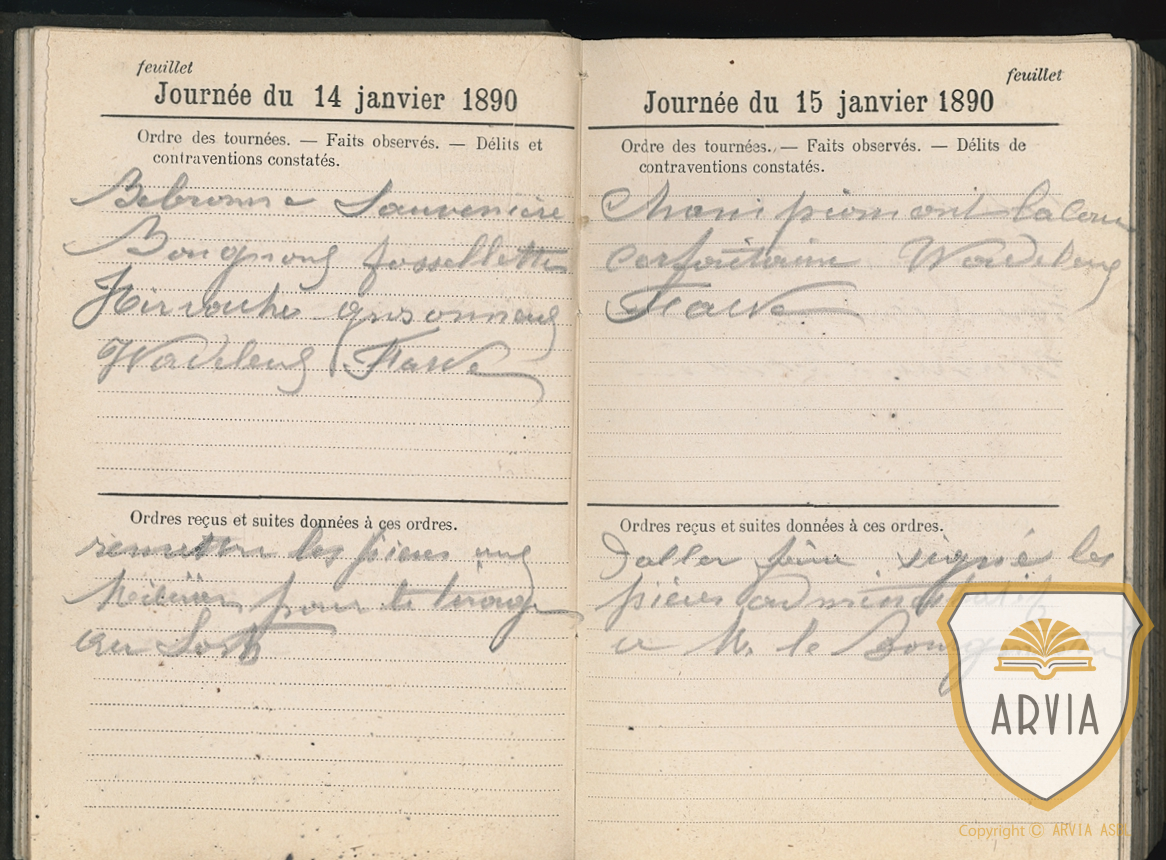 feuillet
Journée du 14 janvier 1890
Ordre des tournées. — Faits observés. — Délits et
contraventions constatés.
Bebronne Sauvenière
Bongnoul fossellette
Hèrvouhe grisonneux
Wadeleux Flasse
Ordres reçus et suites données à ces ordres.
remettre les pièces aux
pour le tirage
au Sort
feuillet
Journée du 15 janvier 1890
Ordre des tournées. — Faits observés. — Délits de
contraventions constatés.
Wadeleux
Ordres reçus et suites données à ces ordres.
Daller faire signé les
pièces administratif
a M. le
ARVIA
Copyright © ARVIA ASBL